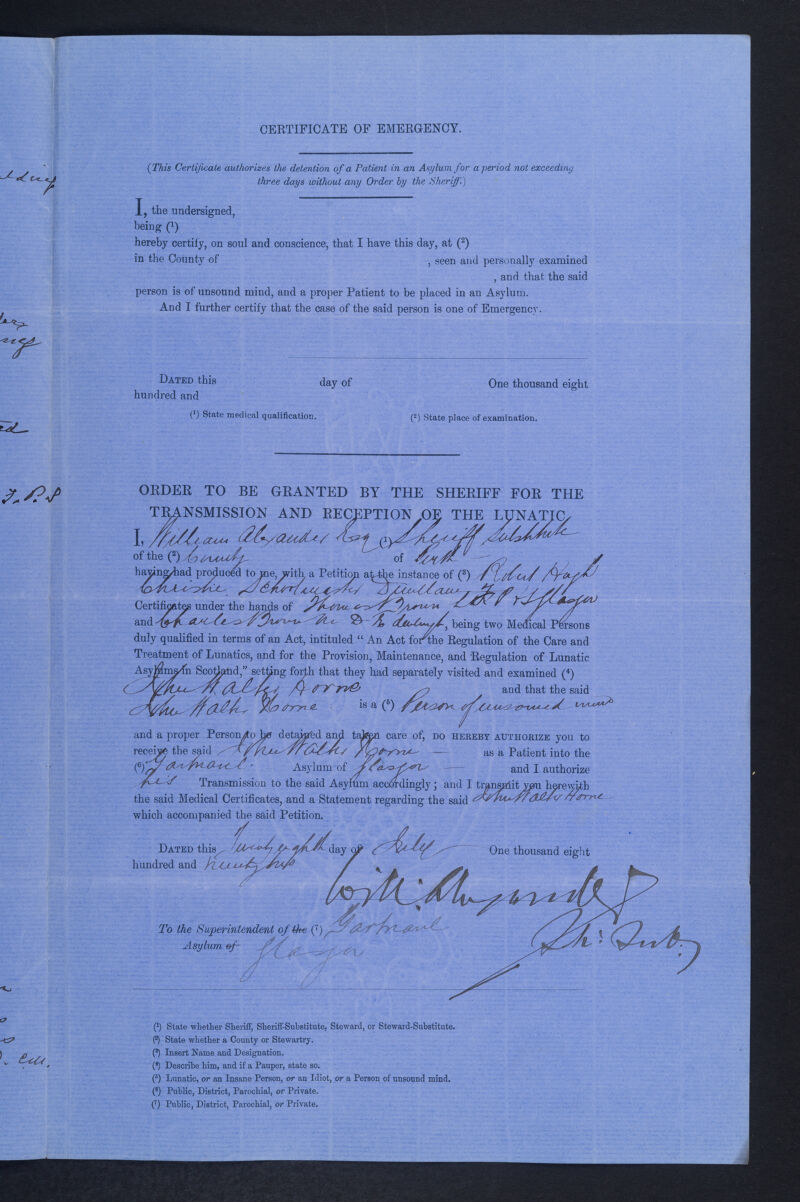 CERTIFICATE OF EMERGENCY.
(This Certificate authorizes the detention of a Patient in an Asylum for a period not exceeding
three days without any Order by the Sheriff.)
I, the undersigned,
being (¹)
hereby certify, on soul and conscience, that I have this day, at (²)
in the County of , seen and personally examined
, and that the said
person is of unsound mind, and a proper Patient to be placed in an Asylum.
And I further certify that the case of the said person is one of Emergency.
DATED this day of One thousand eight
hundred and
(¹) State medical qualification. (²) State place of examination.
ORDER TO BE GRANTED BY THE SHERIFF FOR THE
TRANSMISSION AND RECEPTION OF THE LUNATIC.
I, William Alexander Esq (¹) Sheriff Substitute
of the (²) County of Perth
having had produced to me, with a Petition at the instance of (³) Robert Hugh
Christie Schoolmaster
Certificates under the hands of Thomas Brown L F P & S Glasgow
and Charles Brown M D Edenburgh, being two Medical Persons
duly qualified in terms of an Act, intituled "An Act for the Regulation of the Care and
Treatment of Lunatics, and for the Provision, Maintenance, and Regulation of Lunatic
Asylums in Scotland," setting forth that they had separately visited and examined (⁴)
John Walter Horne and that the said
John Walter Horne is a (⁵) Person of unsound mind
and a proper Person to be detained and taken care of, DO HEREBY AUTHORIZE you to
receive the said John Walter Horne as a Patient into the
(⁶) Gartnavel Asylum of Glasgow and I authorize
his Transmission to the said Asylum accordingly; and I transmit you herewith
the said Medical Certificates, and a Statement regarding the said John Walter Horne
which accompanied the said Petition.
DATED this Twenty eighth day of July One thousand eight
hundred and ninety
Will: Alexander
Sh: Sub:
To the Superintendent of the (⁷) Gartnavel
Asylum of Glasgow
(¹) State whether Sheriff, Sheriff-Substitute, Steward, or Steward-Substitute.
(²) State whether a County or Stewartry.
(³) Insert Name and Designation.
(⁴) Describe him, and if a Pauper, state so.
(⁵) Lunatic, or an Insane Person, or an Idiot, or a Person of unsound mind.
(⁶) Public, District, Parochial, or Private.
(⁷) Public, District, Parochial, or Private.